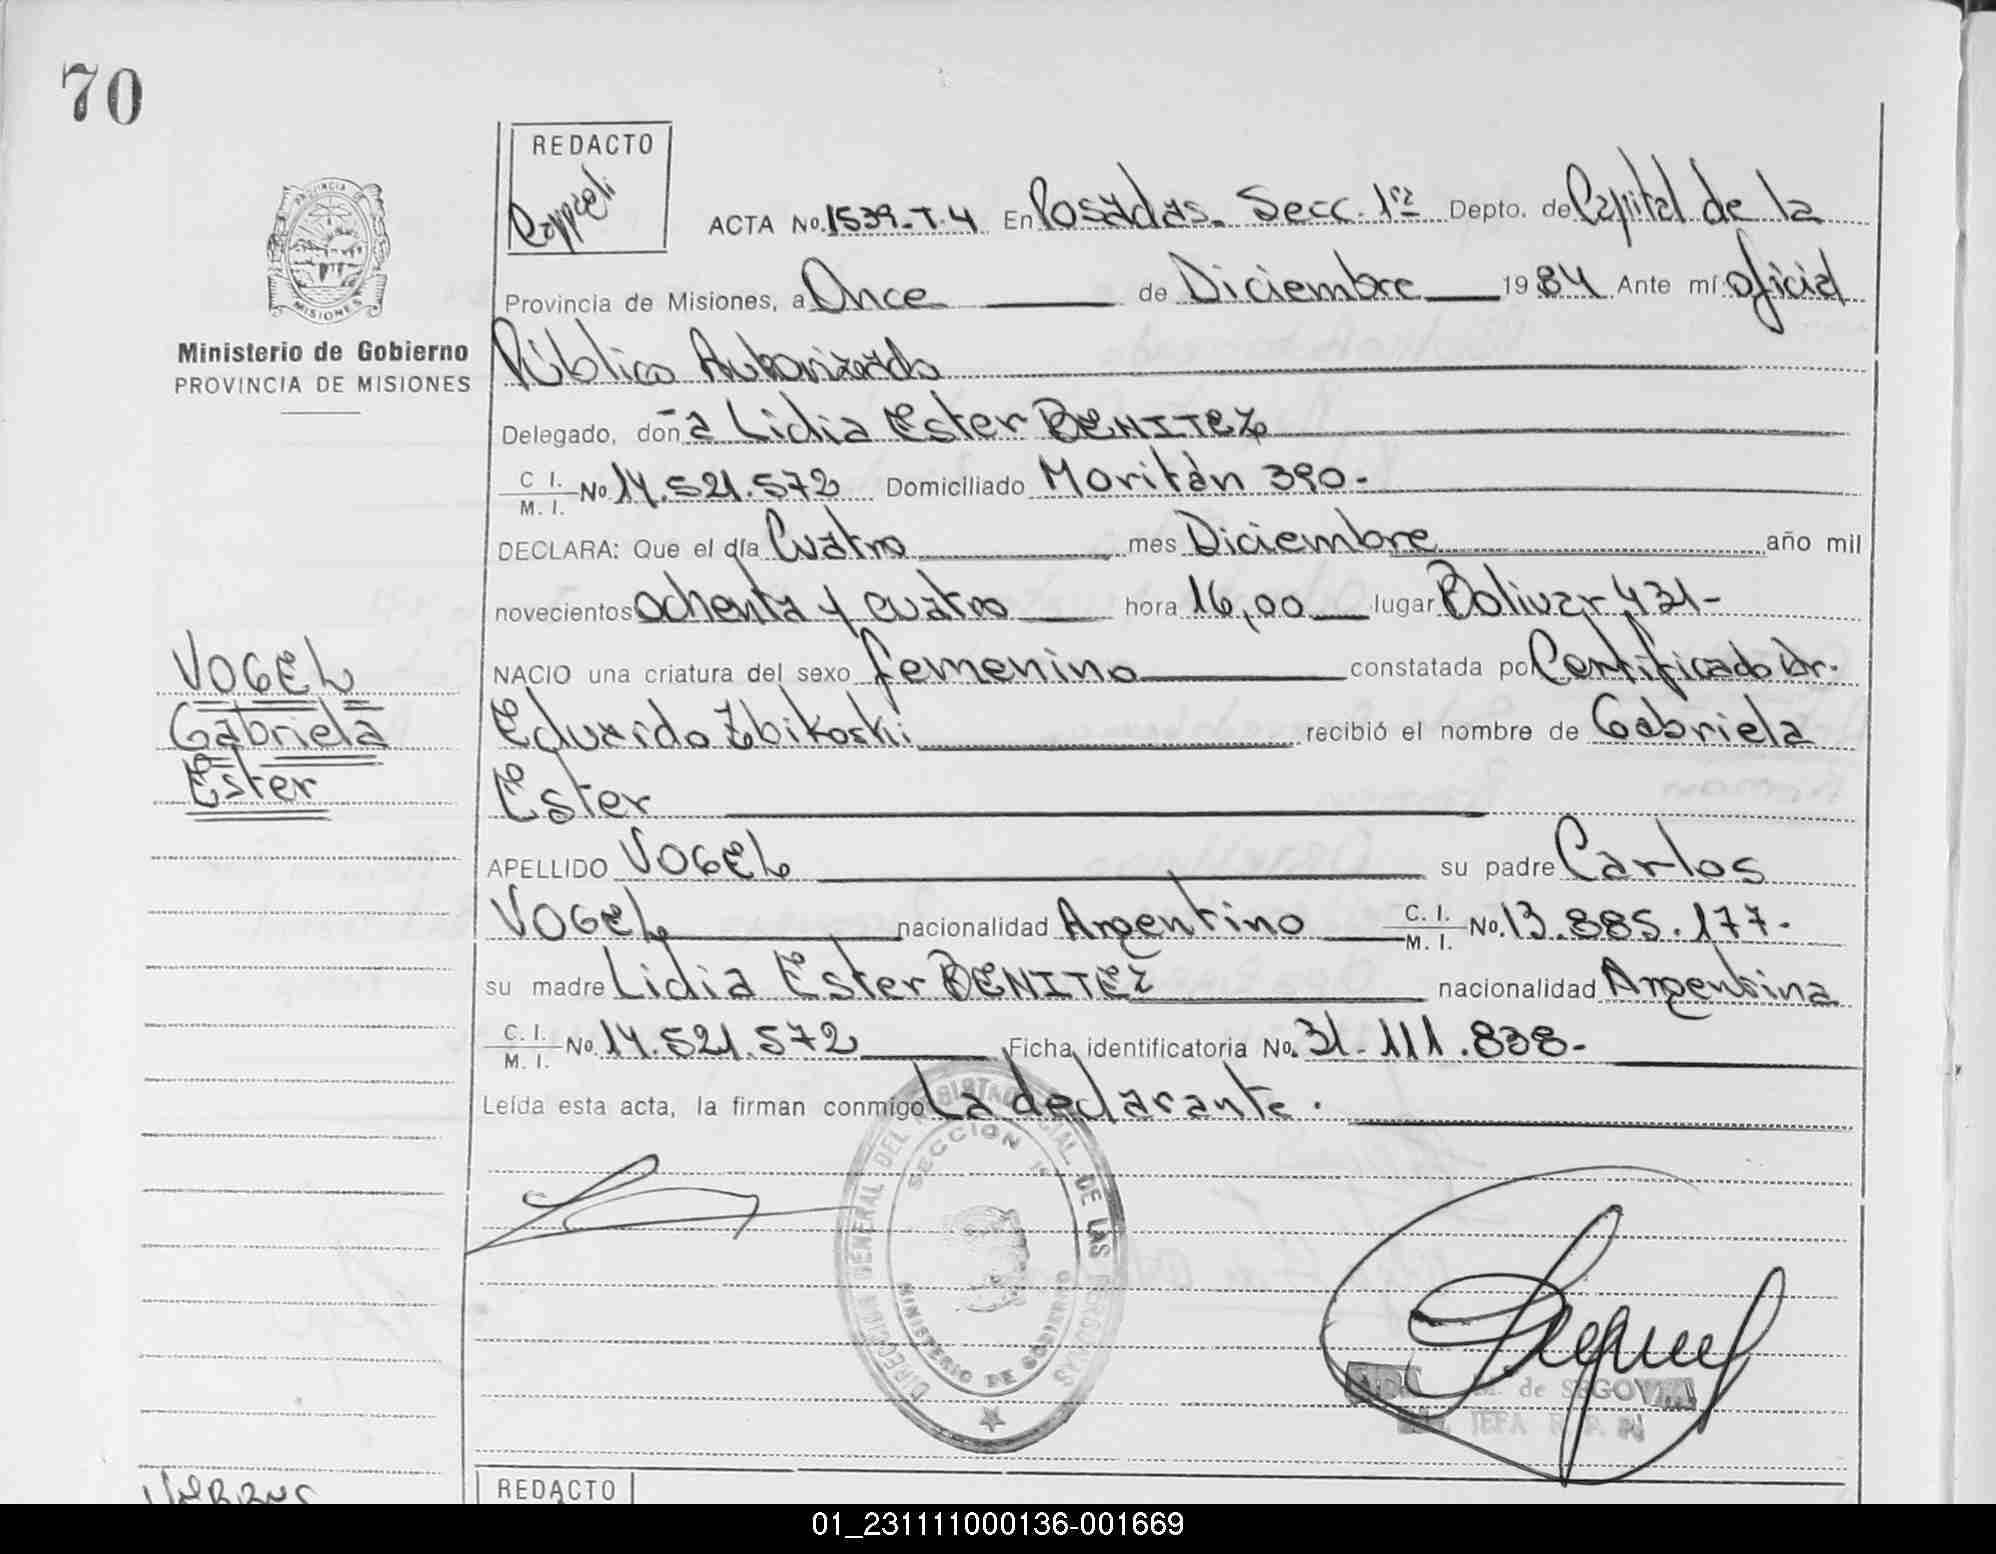 70
REDACTO
ACTA No. 1539-T.4 En Posadas. Secc. 1ra Depto. de Capital de la
Provincia de Misiones, a Once de Diciembre 1984 Ante mí oficial
PROVINCIA DE MISIONES
Ministerio de Gobierno
PROVINCIA DE MISIONES
Público Autorizado
Delegado, don ̃a Lidia Ester BENITEZ
C I. M. I. No 14.521.572 Domiciliado Moritán 390.-
DECLARA: Que el día Cuatro mes Diciembre año mil
novecientos ochenta y cuatro hora 16,00 lugar Bolivar 431-
VOGEL
Gabriela
Ester
NACIO una criatura del sexo femenino constatada por Certificado Dr.
Eduardo Zbikoski recibió el nombre de Gabriela
Ester
APELLIDO VOGEL su padre Carlos
VOGEL nacionalidad Argentino C. I. M. I. No. 13.885.177-
su madre Lidia Ester BENITEZ nacionalidad Argentina
C. I. M. I. No. 14.521.572 Ficha identificatoria No. 31.111.838-
Leída esta acta, la firman conmigo La declarante.
DIRECCION GENERAL DEL REGISTRO PROVINCIAL DE LAS PERSONAS
SECCION 1a
MINISTERIO DE GOBIERNO
M. de SEGOVIA
JEFA R. P.
REDACTO
01_231111000136-001669